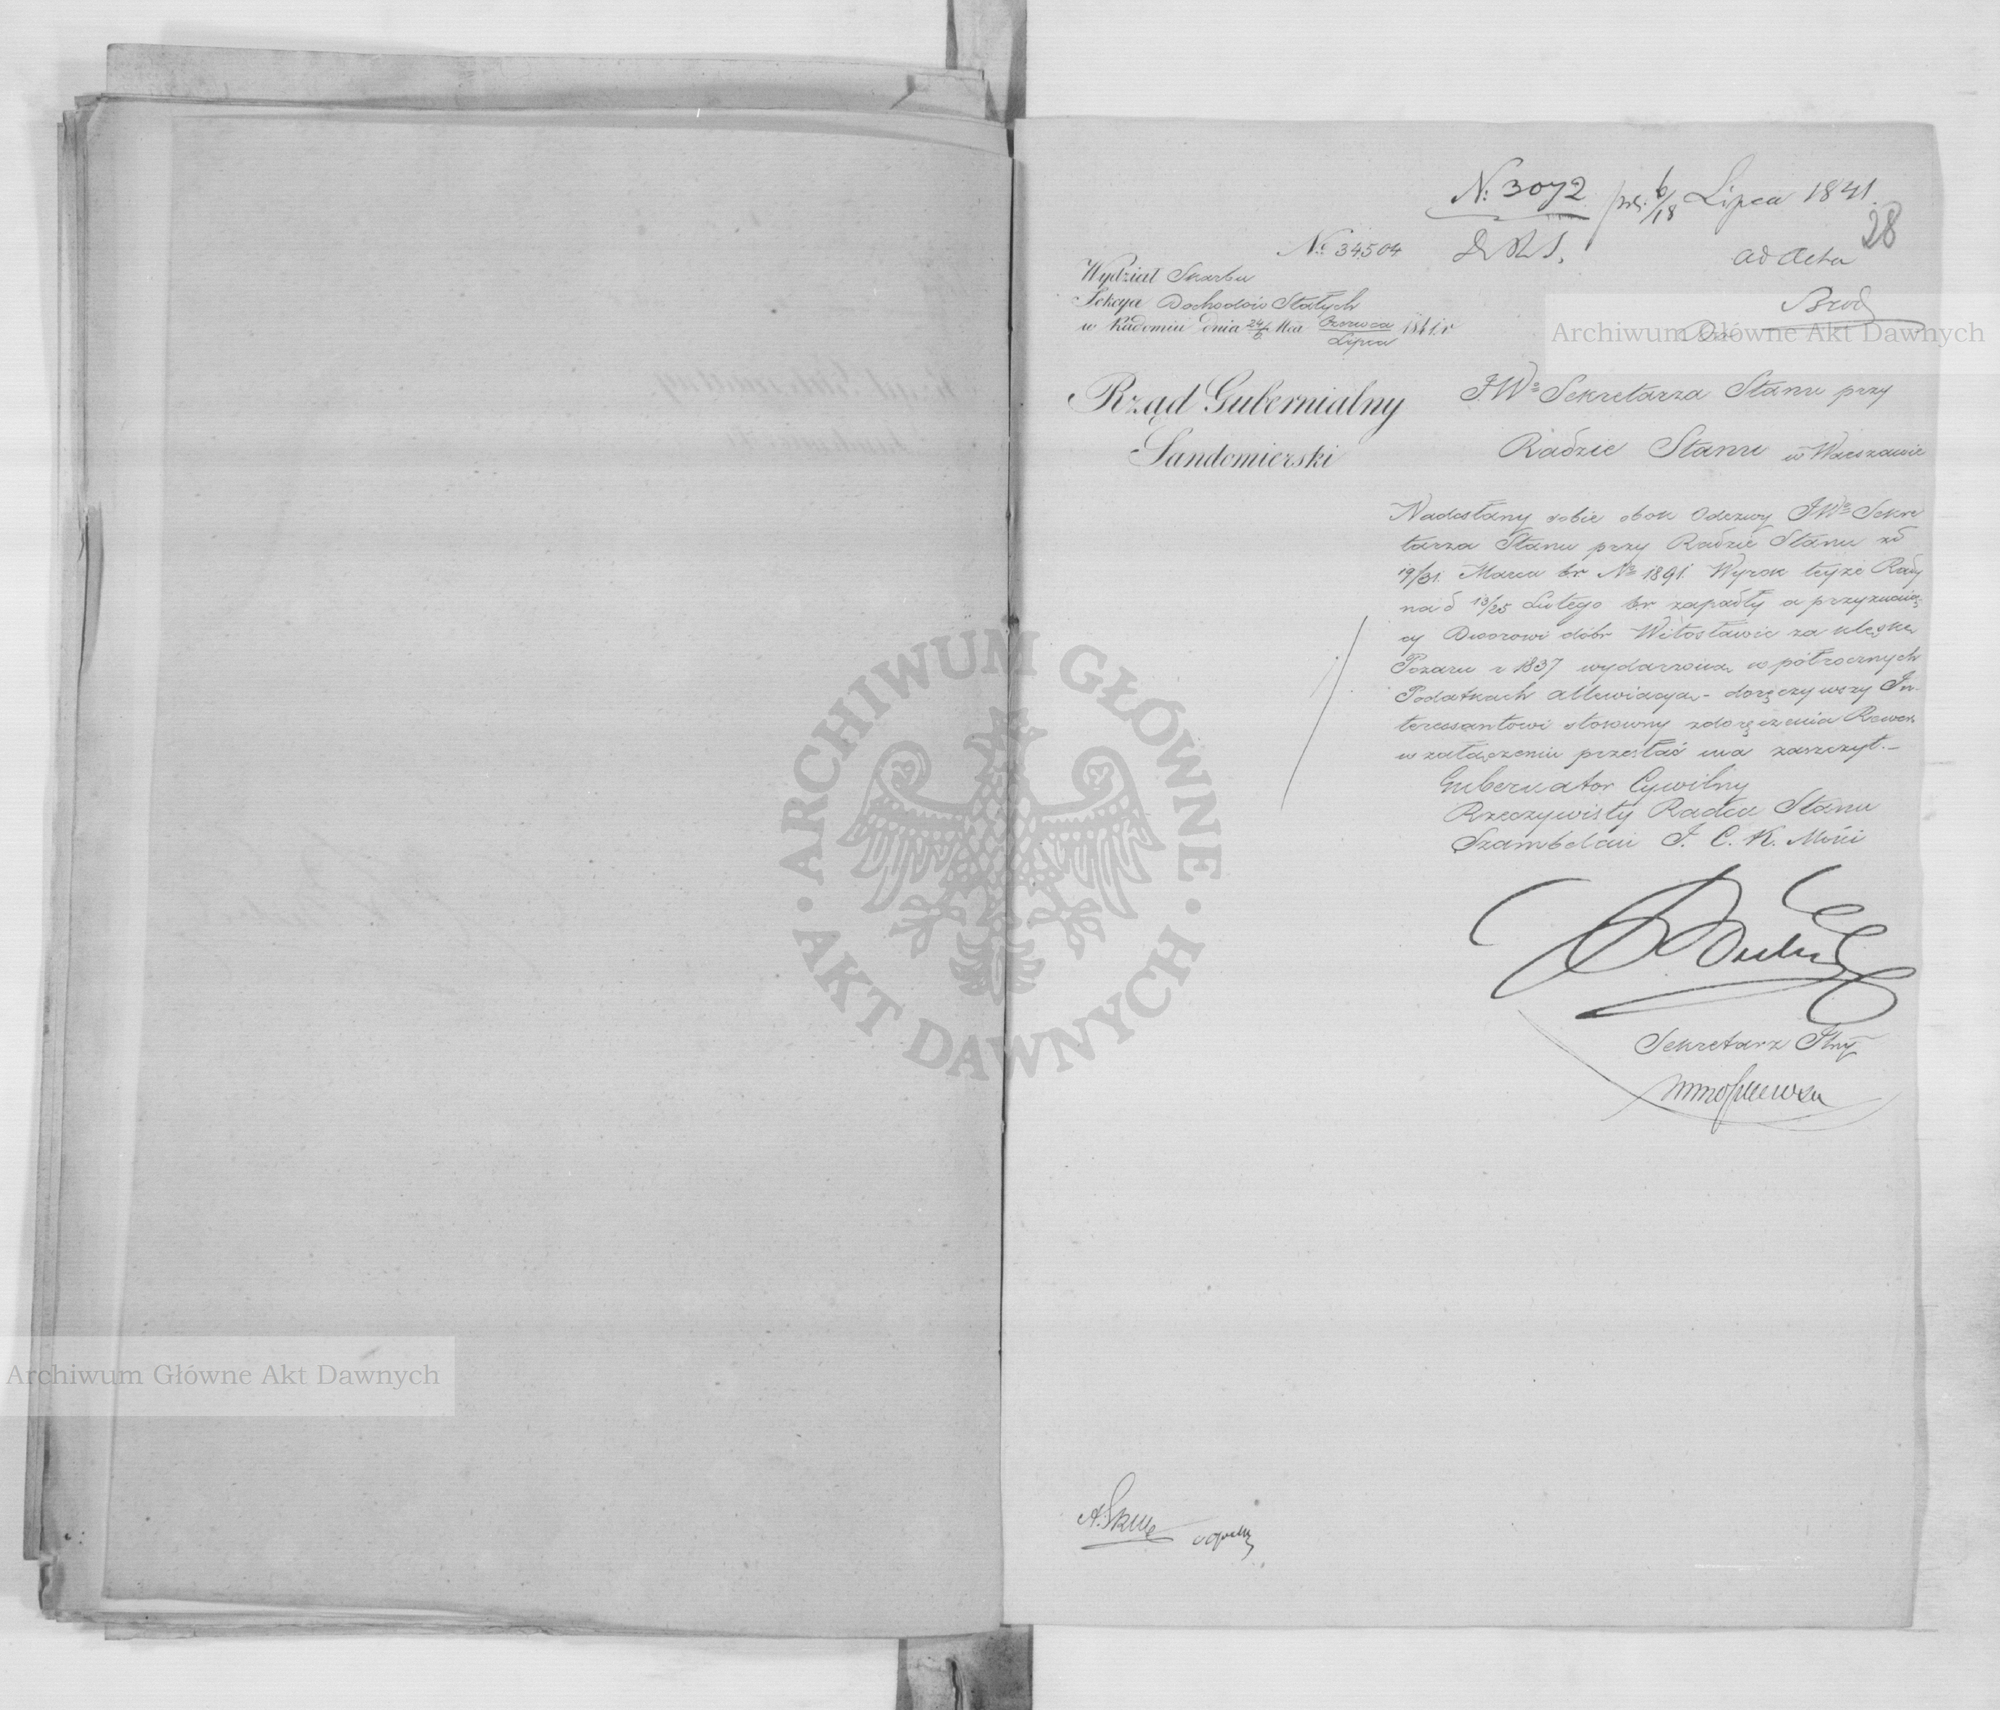 N: 3072 6/18 Lipca 1841.
28
No 34504
ad Acta
Wydział Skarbu
Sekcya Dochodów Stałych
w Radomiu dnia 24/6 Mca Czerwca/Lipca 1841 r
Do
Rząd Gubernialny
Sandomierski
JWo Sekretarza Stanu przy
Radzie Stanu w Warszawie
Nadesłany sobie obok Odezwy JWo Sekre
tarza Stanu przy Radzie Stanu zd
19/31. Marca br No 1891. Wyrok tejże Rady
na d 13/25 Lutego br zapadły a przyznając
cy Dworowi dóbr Witosławic za klęskę
Pożaru r 1837 wydarzoną w półrocznych
Podatkach allewiacyą - doręczywszy In-
teressantowi stosowny zdoręczenia Rewers
w załączeniu przesłać ma zaszczyt. -
Gubernator Cywilny
Rzeczywisty Radca Stanu
Szambelan J. C. K. Mości
Sekretarz Jlny
Archiwum Główne Akt Dawnych
ARCHIWUM GŁÓWNE
AKT DAWNYCH
Archiwum Główne Akt Dawnych